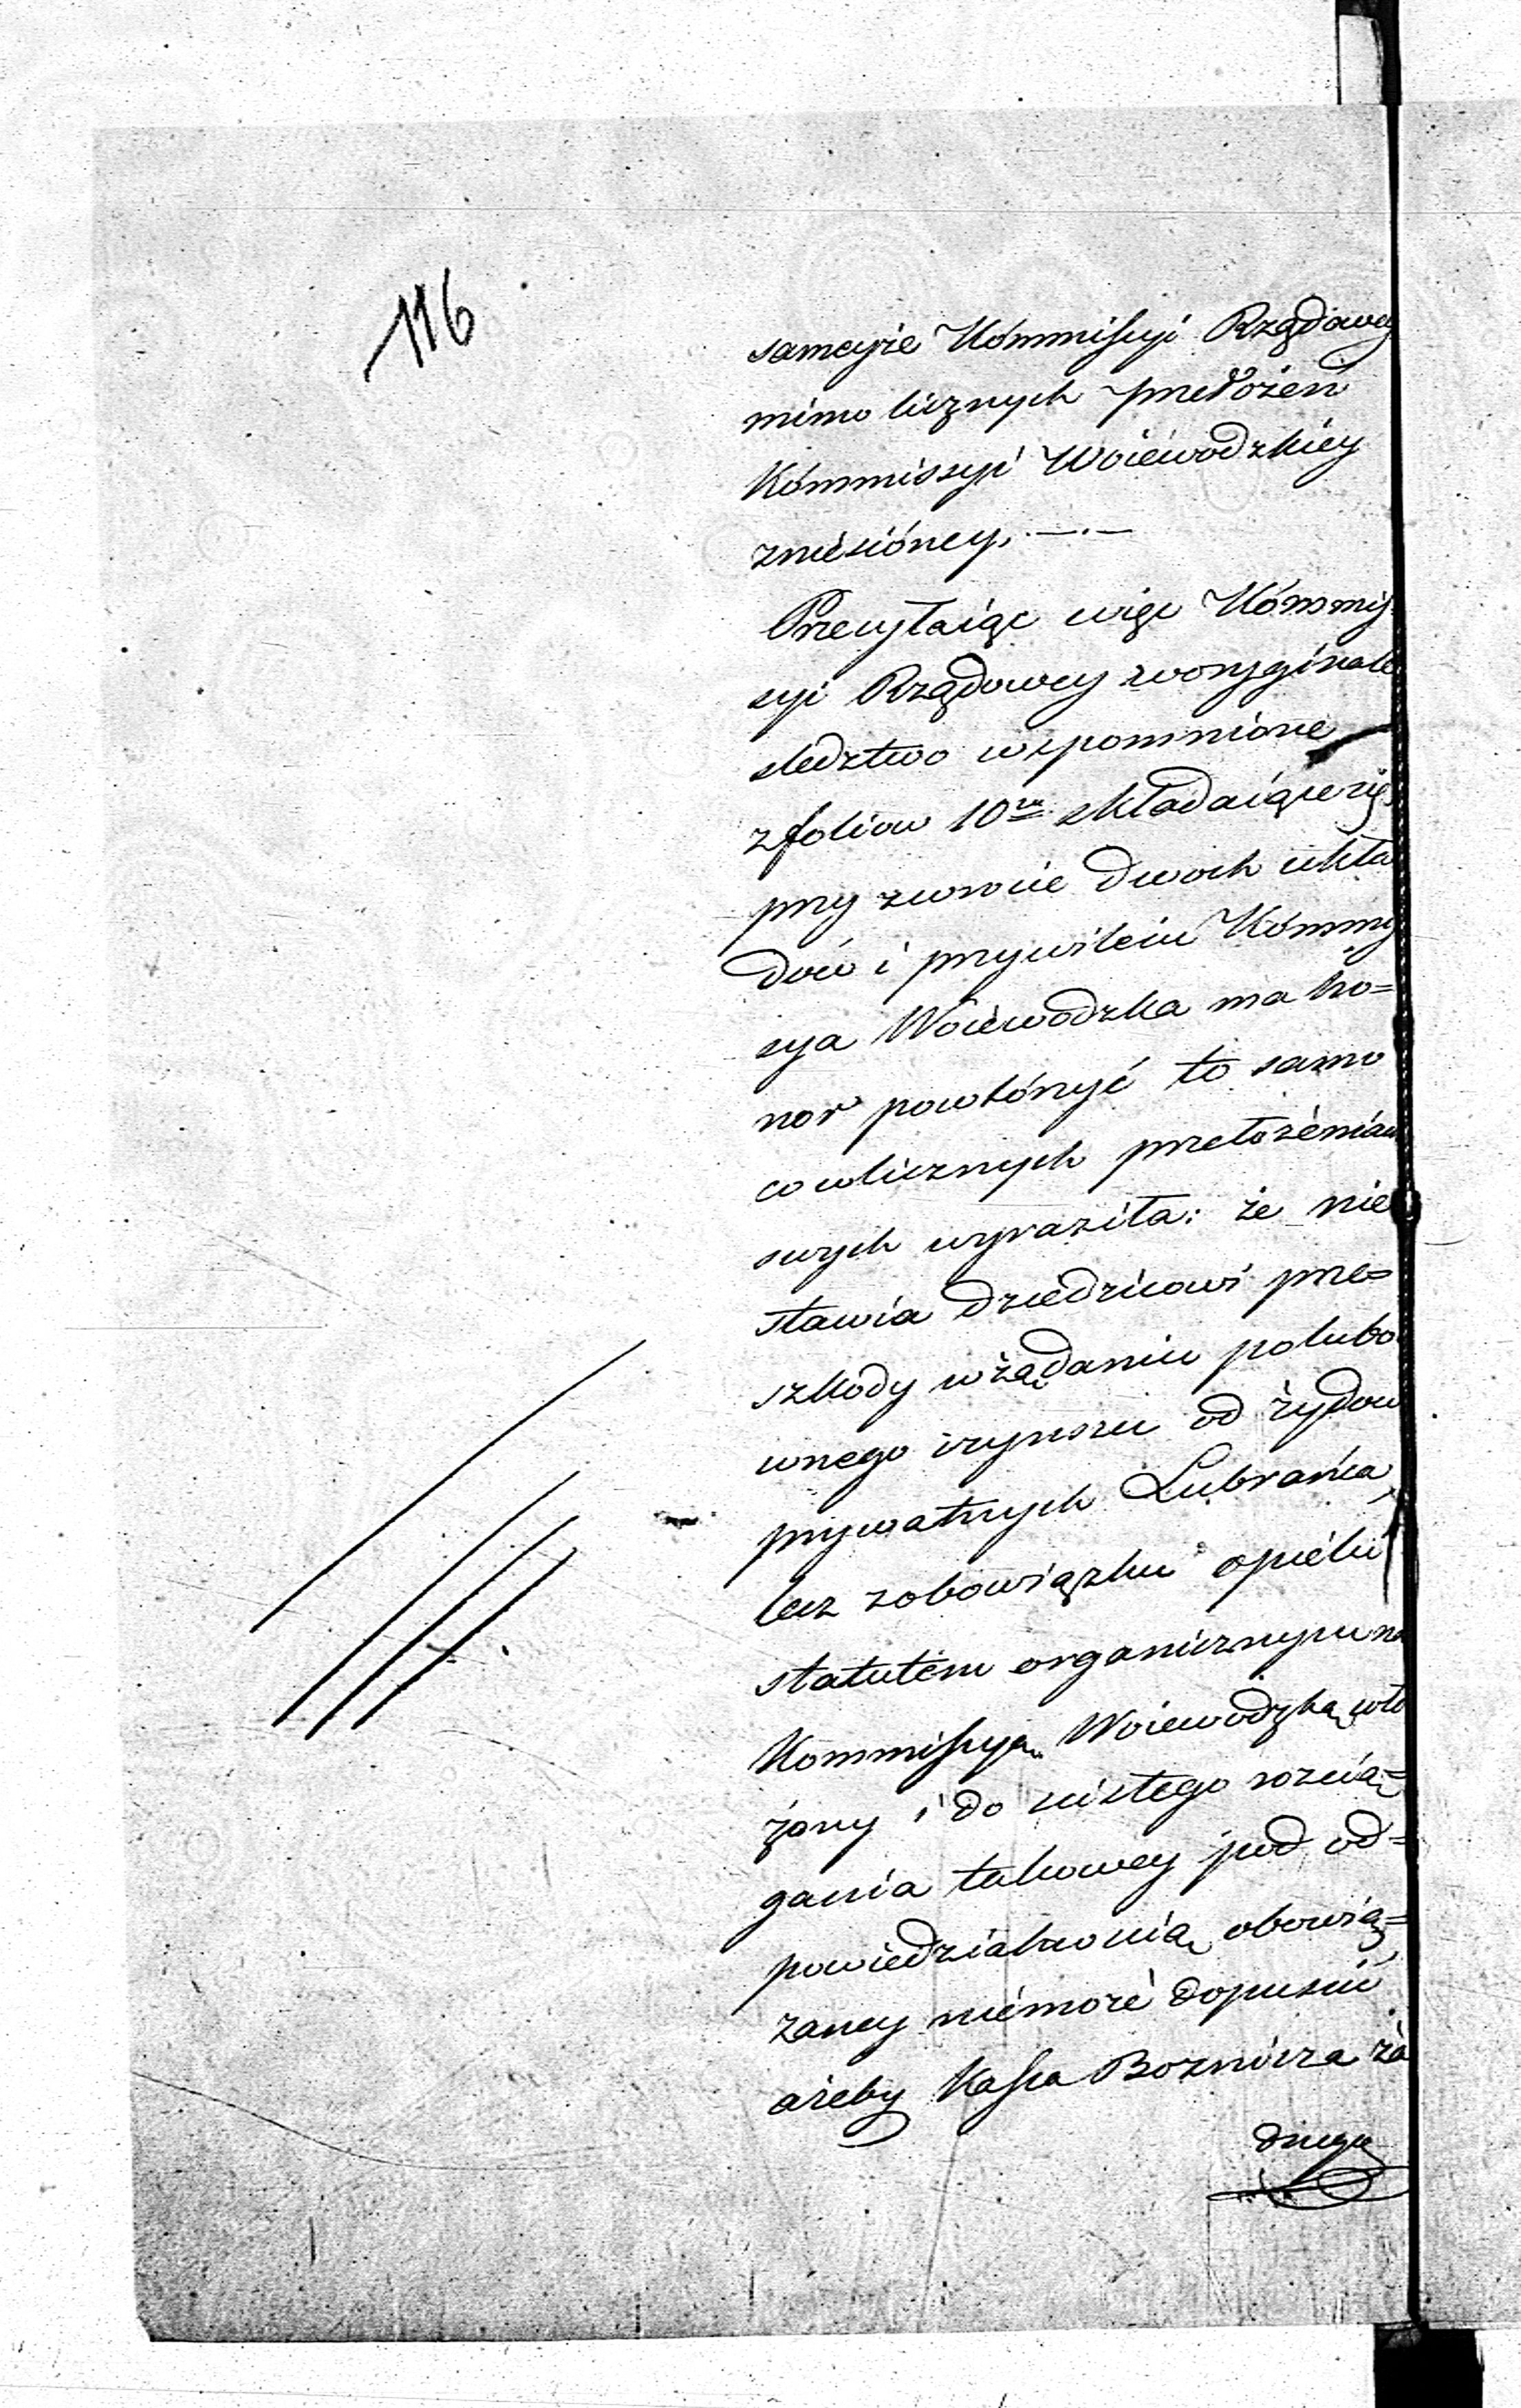 116
samejże Kommissyi Rządowey
mimo licznych przełożeń
Kommissyi Woiewodzkiey
zniesióney. —.—
Przesyłaiąc więc Kommis
syi Rządowey w oryginale
sledztwo wspomnione
z foliow 10ciu składaiące się
przy zwrocie dwoch układ
dów i przywileiu Kommis
sya Woiewodzka ma ho=
nor powtórzyć to samo
co w licznych przełożéniach
swych wyraziła: że nie
stawia dziedzicowi prze=
szkody w żądaniu polubo
wnego czynszu od żydow
prywatnych Lubrańca,
lecz z obowiązku opieki
statutém organicznym na
Kommissyą Woiewodzką wło
żony i do ścisłego rozcią=
gania takowey pod od=
powiedzialnością obowią=
zaney niemoże dopuścić
ażeby Kassa Boznicza za